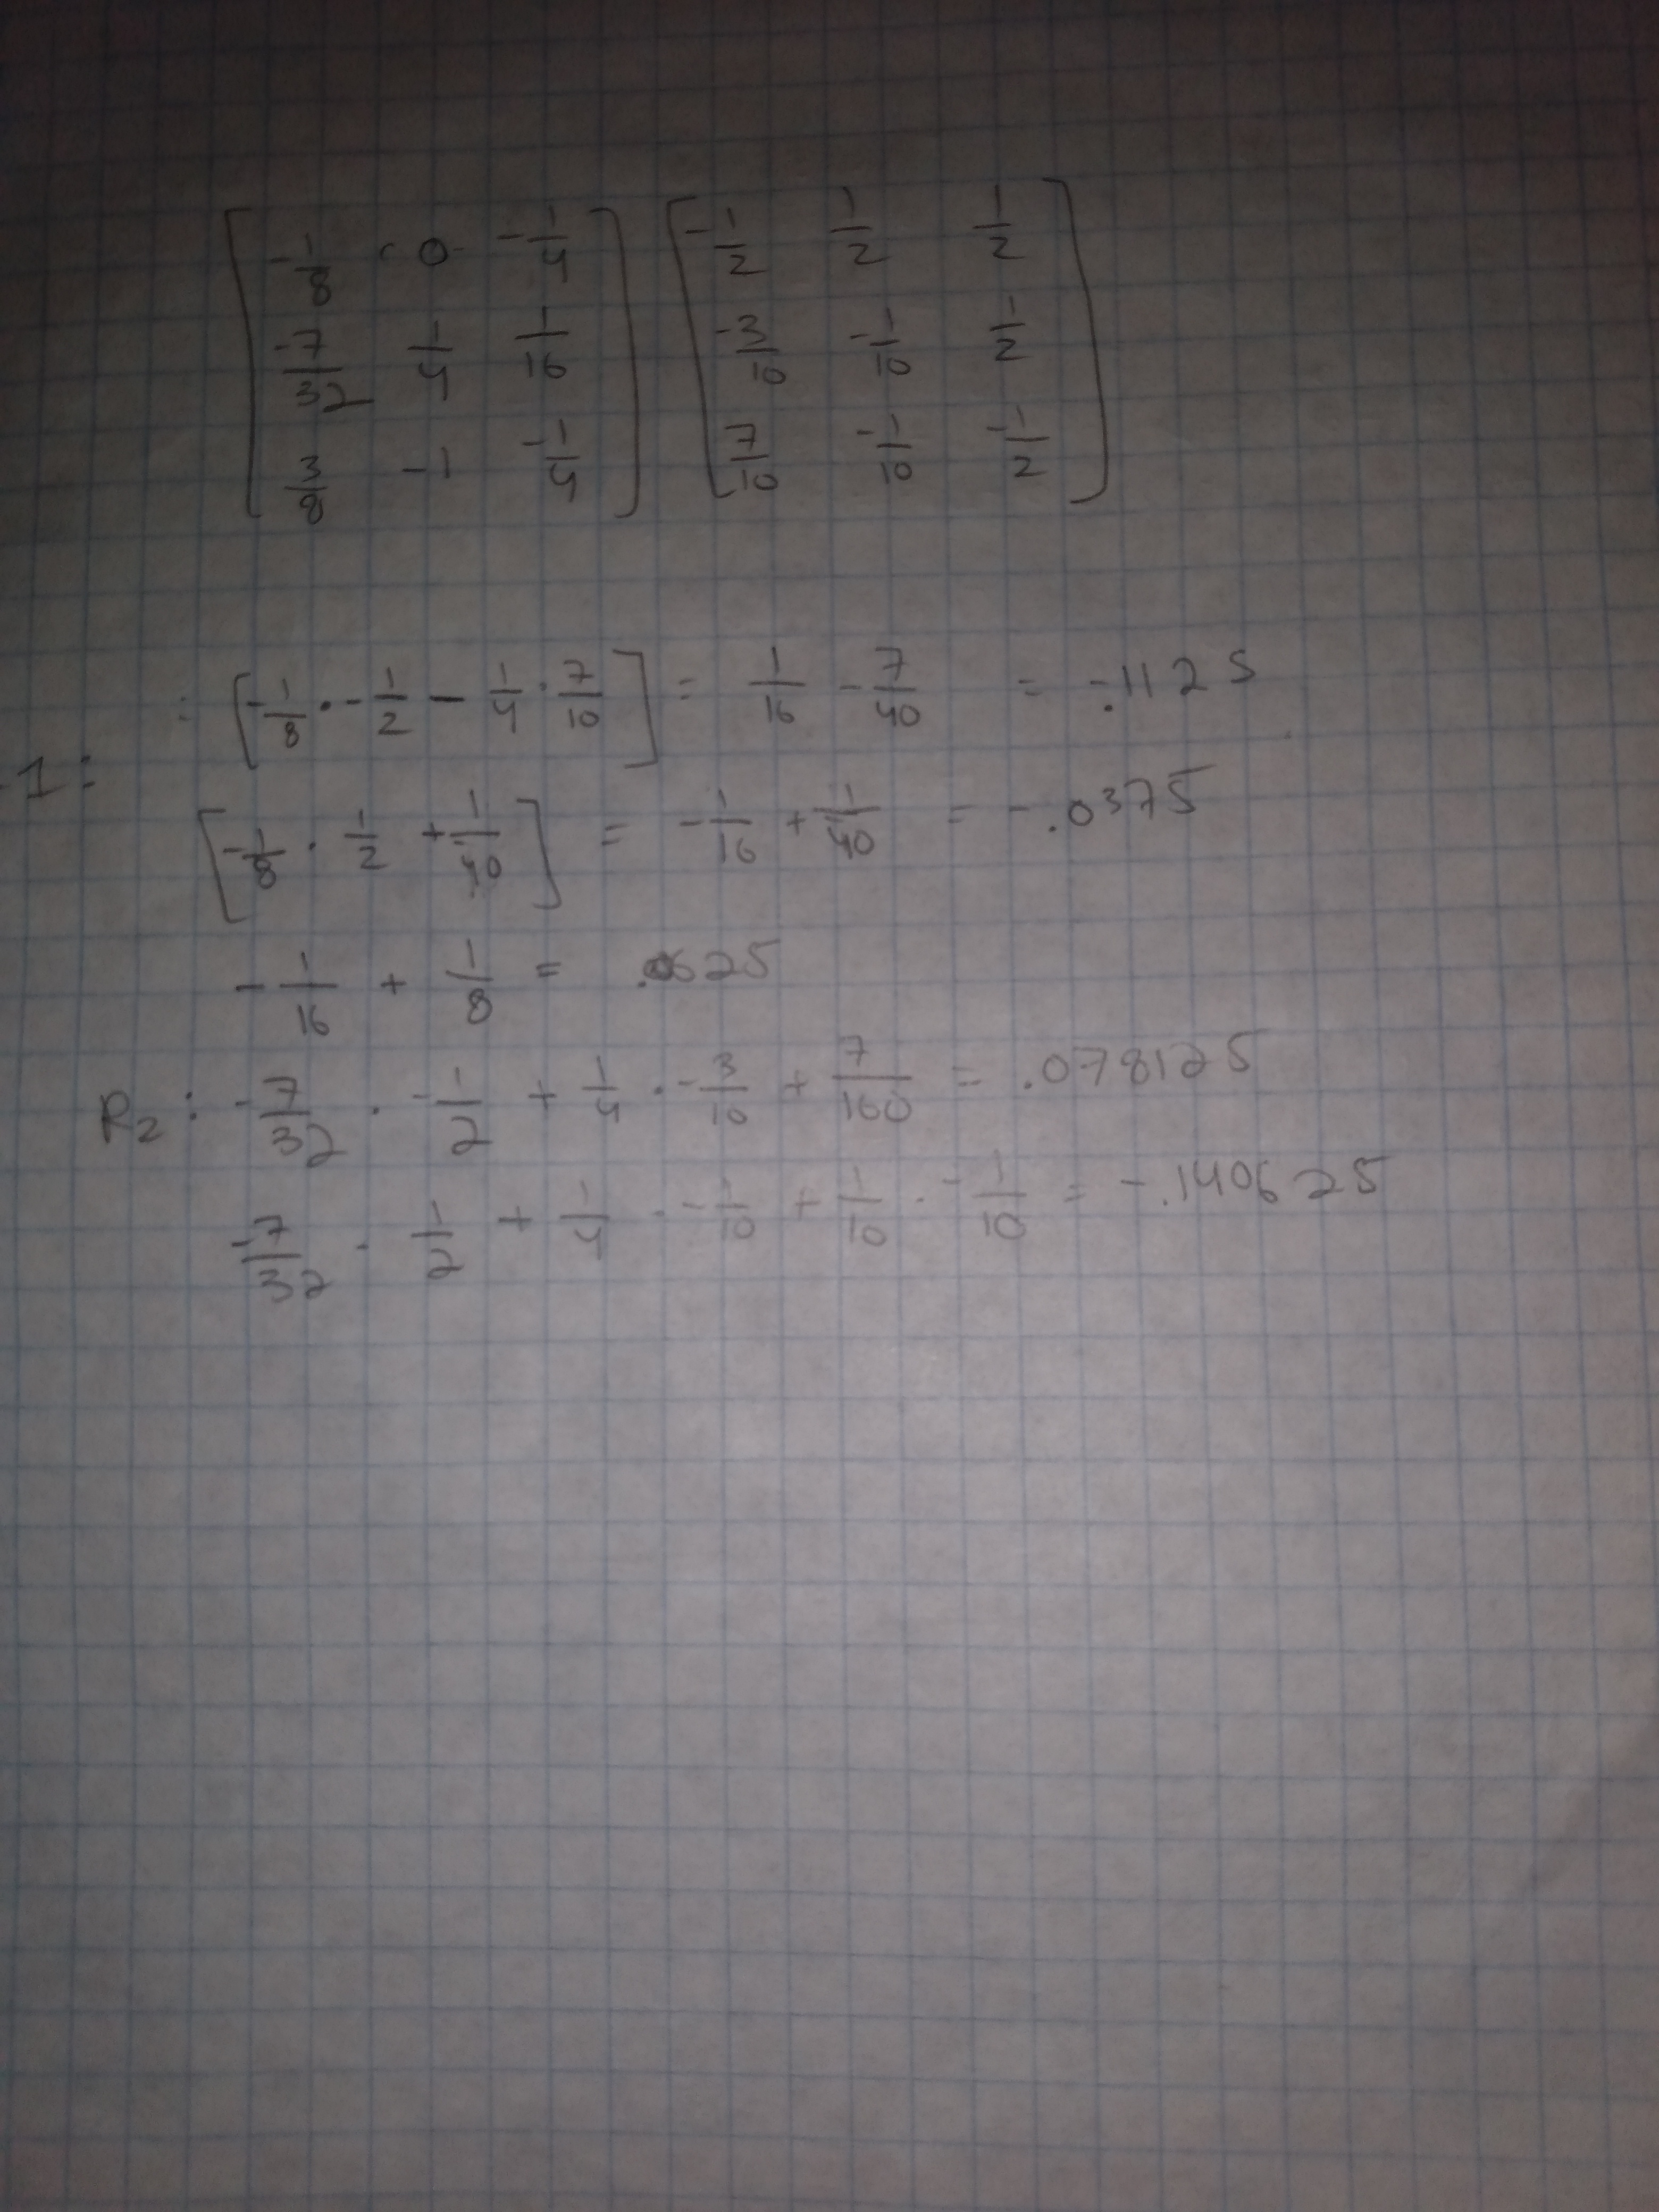 [ -1/8 0 -1/4 ] [ -1/2 1/2 1/2 ]
[ -7/32 1/4 1/16 ] [ -3/10 -1/10 1/2 ]
[ 3/8 -1 -1/4 ] [ 7/10 -1/10 -1/2 ]
: [ -1/8 · -1/2 - 1/4 · 7/10 ] = 1/16 - 7/40 = -.1125
1:
[ -1/8 · 1/2 + 1/40 ] = -1/16 + 1/40 = -.0375
-1/16 + 1/8 = .0625
R2: -7/32 · -1/2 + 1/4 · -3/10 + 7/160 = .078125
-7/32 · 1/2 + 1/4 · -1/10 + 1/10 · -1/10 = -.140625